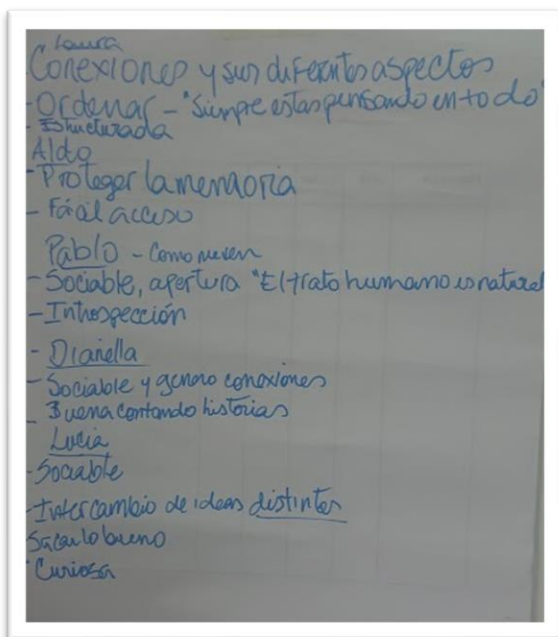 Laura
Conexiones y sus diferentes aspectos
- Ordenar - "Siempre estas pensando en todo"
- Estructurada
Aldo
- Proteger la memoria
- Fácil acceso
Pablo - Como me ven
- Sociable, apertura "El trato humano es natural
- Introspección
- Dianella
- Sociable y genero conexiones
- Buena contando historias
Lucia
- Sociable
- Intercambio de ideas distintas
Sacar lo bueno
- Curiosa